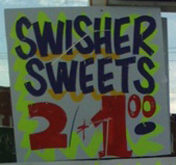 SWISHER
SWEETS
2/$1.00